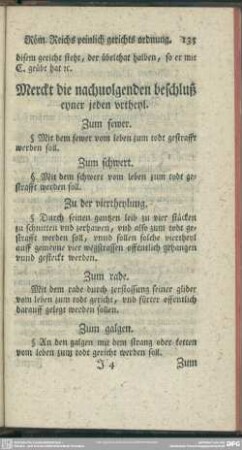 Röm. Reichs peinlich gerichts ordnung. 135
disem gericht steht, der übelthat halben, so er mit
C. geübt hat ꝛc.
Merckt die nachuolgenden beschluß
eyner jeden vrtheyl.
Zum fewer.
§ Mit dem fewer vom leben zum todt gestrafft
werden soll.
Zum schwert.
§. Mit dem schwert vom leben zum todt ge-
strafft werden soll.
Zu der viertheylung.
§ Durch seinen gantzen leib zu vier stücken
zu schnitten vnd zerhawen, vnd also zum todt ge-
strafft werden soll, vnnd sollen solche viertheyl
auff gemeyne vier wegstrassen offentlich gehangen
vnnd gesteckt werden.
Zum rade.
Mit dem rade durch zerstossung seiner glider
vom leben zum todt gericht, vnd fürter offentlich
darauff gelegt werden sollen.
Zum galgen.
§ An den galgen mit dem strang oder ketten
vom leben zum todt gericht werden soll.
J 4 Zum